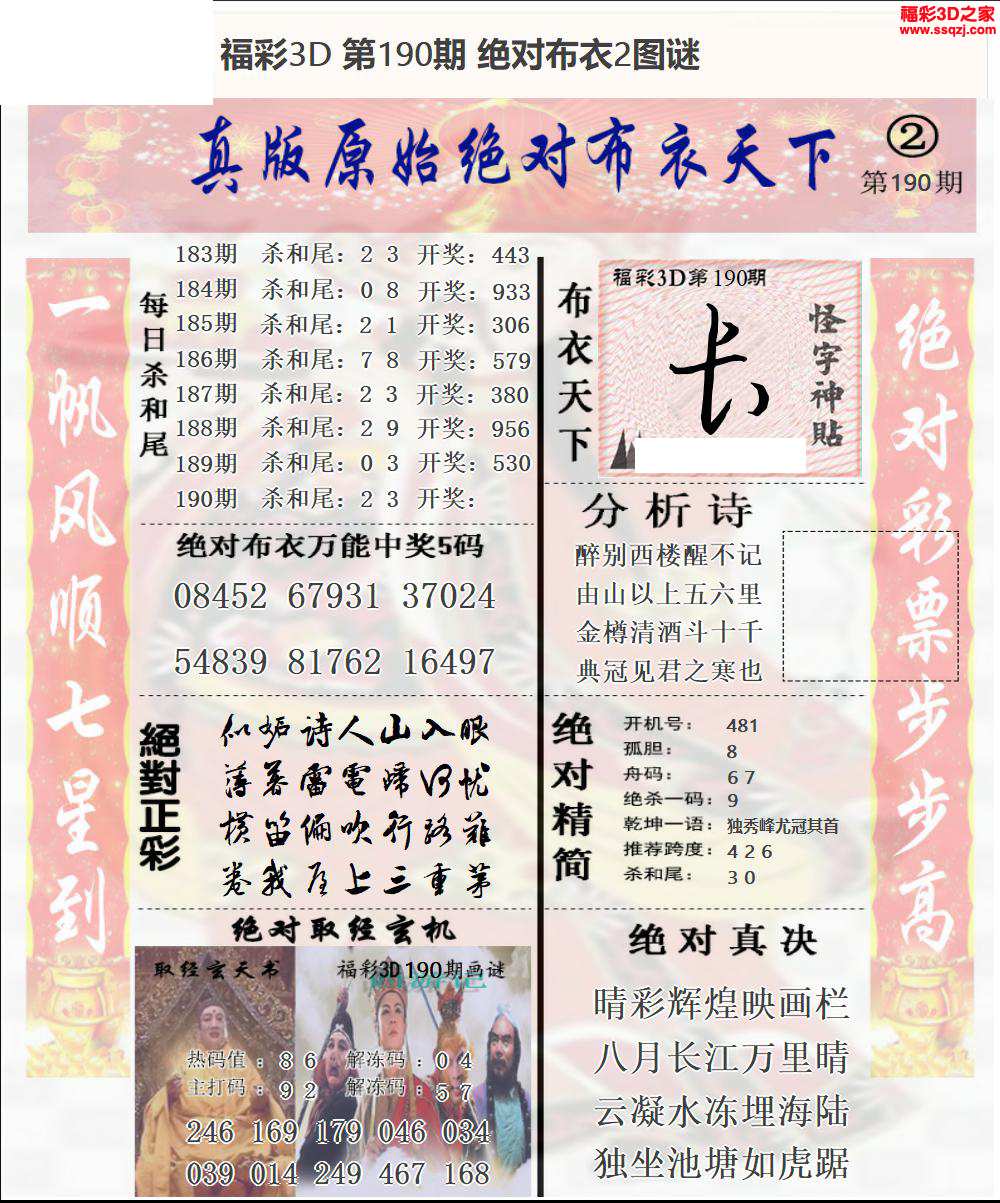 福彩3D之家
www.ssqzj.com
福彩3D 第190期 绝对布衣2图谜
真版原始绝对布衣天下
②
第190期
一帆风顺七星到
每日杀和尾
183期 杀和尾：2 3 开奖：443
184期 杀和尾：0 8 开奖：933
185期 杀和尾：2 1 开奖：306
186期 杀和尾：7 8 开奖：579
187期 杀和尾：2 3 开奖：380
188期 杀和尾：2 9 开奖：956
189期 杀和尾：0 3 开奖：530
190期 杀和尾：2 3 开奖：
绝对布衣万能中奖5码
08452 67931 37024
54839 81762 16497
絕對正彩
似妬诗人山入眼
薄暮雷電歸何忧
横笛偏吹行路難
卷我屋上三重茅
绝对取经玄机
取经玄天书
福彩3D190期画谜
热码值：8 6 解冻码：0 4
主打码：9 2 解冻码：5 7
246 169 179 046 034
039 014 249 467 168
布衣天下
福彩3D第190期
怪字神貼
分析诗
醉别西楼醒不记
由山以上五六里
金樽清酒斗十千
典冠见君之寒也
绝对精简
开机号：481
孤胆：8
舟码：6 7
绝杀一码：9
乾坤一语：独秀峰尤冠其首
推荐跨度：4 2 6
杀和尾：3 0
绝对真决
晴彩辉煌映画栏
八月长江万里晴
云凝水冻埋海陆
独坐池塘如虎踞
绝对彩票步步高